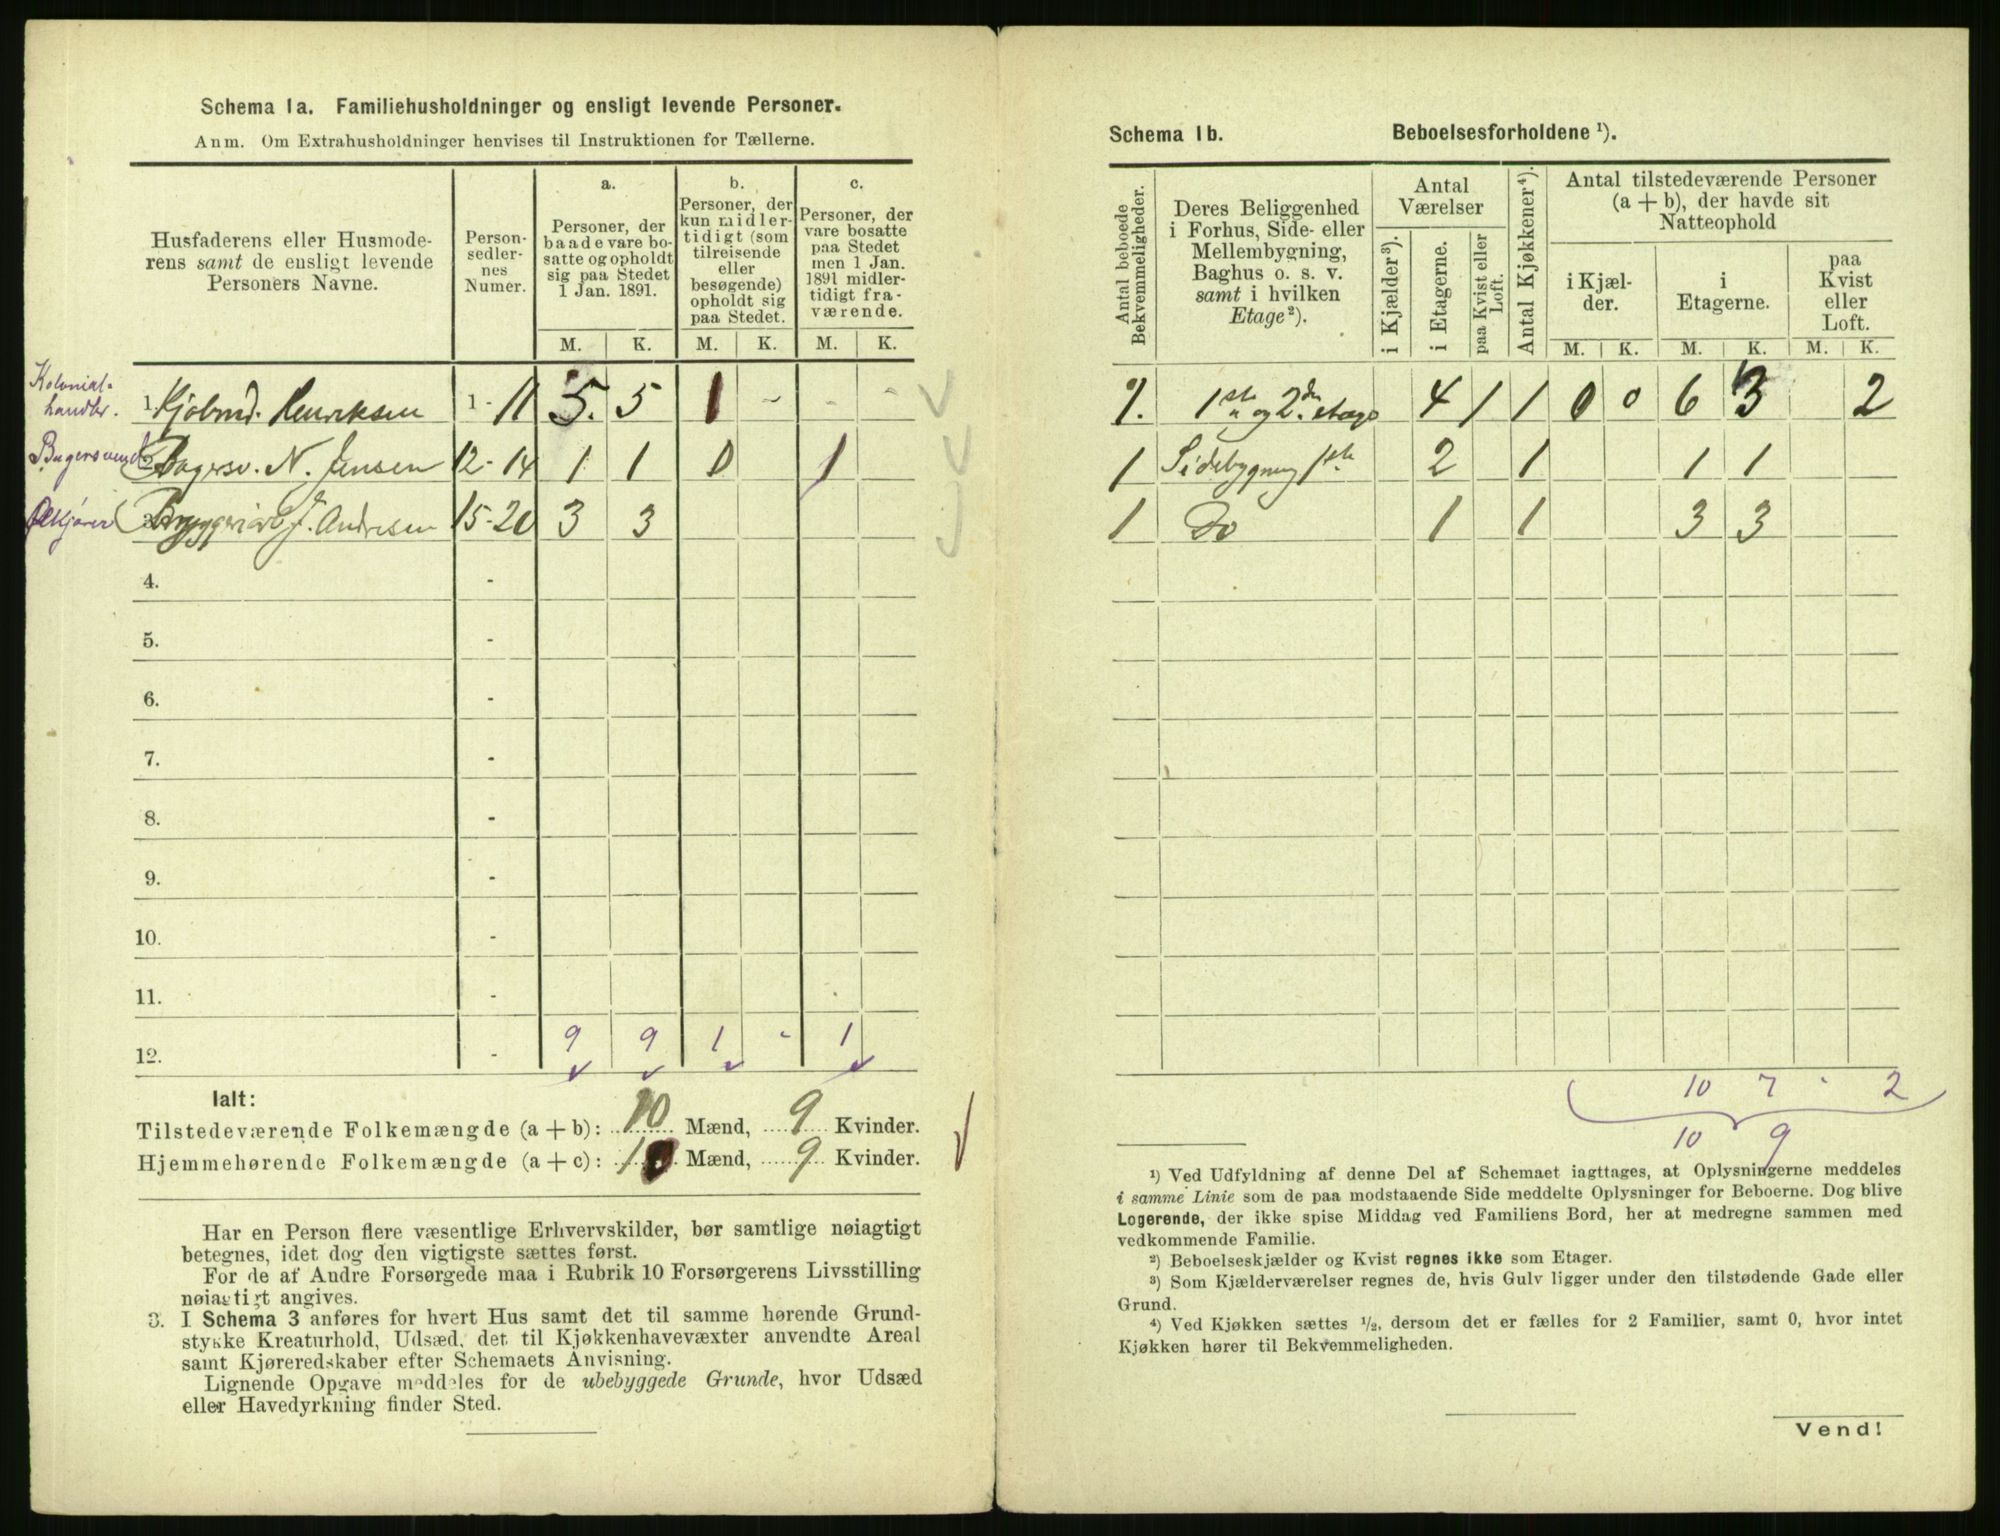 Schema 1a. Familiehusholdninger og ensligt levende Personer.
Anm. Om Extrahusholdninger henvises til Instruktionen for Tællerne.
Husfaderens eller Husmode-
rens samt de ensligt levende
Personers Navne.
Person-
sedler-
nes
Numer.
a.
Personer, der
baade vare bo-
satte og opholdt
sig paa Stedet
1 Jan. 1891.
b.
Personer, der
kun midler-
tidigt (som
tilreisende
eller
besøgende)
opholdt sig
paa Stedet.
c.
Personer, der
vare bosatte
paa Stedet
men 1 Jan.
1891 midler-
tidigt fra-
værende.
M. K. M. K. M. K.
Kolonial-
handler.
1. Kjøbmd. Henriksen 1 - 11 5. 5 1 - - -
Bagersvend
2. Bagersv. N. Jensen 12 - 14 1 1 0 1
Ølkjører
3. J. Andresen 15 - 20 3 3
4. -
5. -
6. -
7. -
8. -
9. -
10. -
11. -
12. - 9 9 1 - 1
Ialt:
Tilstedeværende Folkemængde (a + b): 10 Mænd, 9 Kvinder.
Hjemmehørende Folkemængde (a + c): 10 Mænd, 9 Kvinder.
Har en Person flere væsentlige Erhvervskilder, bør samtlige nøiagtigt
betegnes, idet dog den vigtigste sættes først.
For de af Andre Forsørgede maa i Rubrik 10 Forsørgerens Livsstilling
nøiagtigt angives.
3. I Schema 3 anføres for hvert Hus samt det til samme hørende Grund-
stykke Kreaturhold, Udsæd, det til Kjøkkenhavevæxter anvendte Areal
samt Kjøreredskaber efter Schemaets Anvisning.
Lignende Opgave meddeles for de ubebyggede Grunde, hvor Udsæd
eller Havedyrkning finder Sted.
Schema 1b. Beboelsesforholdene ¹).
Antal beboede
Bekvemmeligheder.
Deres Beliggenhed
i Forhus, Side- eller
Mellembygning,
Baghus o. s. v.
samt i hvilken
Etage²).
Antal
Værelser
i Kjælder³).
i Etagerne.
paa Kvist eller
Loft.
Antal Kjøkkener⁴).
Antal tilstedeværende Personer
(a + b), der havde sit
Natteophold
i Kjæl-
der.
i
Etagerne.
paa
Kvist
eller
Loft.
M. K. M. K. M. K.
1. 1ste og 2den etage 4 1 1 0 0 6 3 2
1 Sidebygning 1ste 2 1 1 1
1 Do 1 1 3 3
10 7 - 2
10 9
¹) Ved Udfyldning af denne Del af Schemaet iagttages, at Oplysningerne meddeles
i samme Linie som de paa modstaaende Side meddelte Oplysninger for Beboerne. Dog blive
Logerende, der ikke spise Middag ved Familiens Bord, her at medregne sammen med
vedkommende Familie.
²) Beboelseskjælder og Kvist regnes ikke som Etager.
³) Som Kjælderværelser regnes de, hvis Gulv ligger under den tilstødende Gade eller
Grund.
⁴) Ved Kjøkken sættes ¹/₂, dersom det er fælles for 2 Familier, samt 0, hvor intet
Kjøkken hører til Bekvemmeligheden.
Vend!